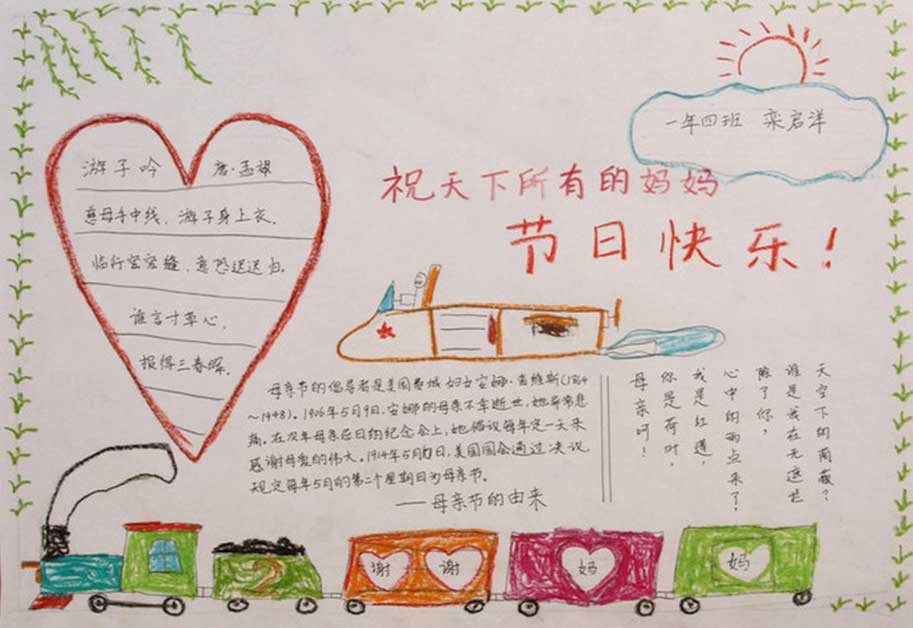 一年四班 栾启洋
祝天下所有的妈妈
节日快乐！
游子吟 唐·孟郊
慈母手中线，游子身上衣。
临行密密缝，意恐迟迟归。
谁言寸草心，
报得三春晖。
母亲节的倡导者是美国费城妇女安娜·查维斯(1864
～1948)。1906年5月9日，安娜的母亲不幸逝世，她非常悲
痛。在次年母亲忌日的纪念会上，她倡议每年定一天来
感谢母爱的伟大。1914年5月日，美国国会通过决议
规定每年5月的第二个星期日为母亲节。
——母亲节的由来
天空下的荫蔽？
谁是我在无遮拦
除了你，
心中的雨点来了，
我是红莲，
你是荷叶，
母亲呵！
2
谢 谢 妈 妈